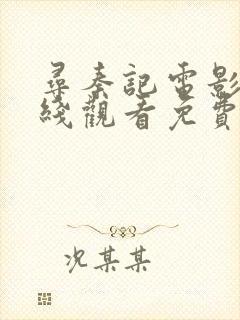 尋秦記電影
綫觀看免費
况某某